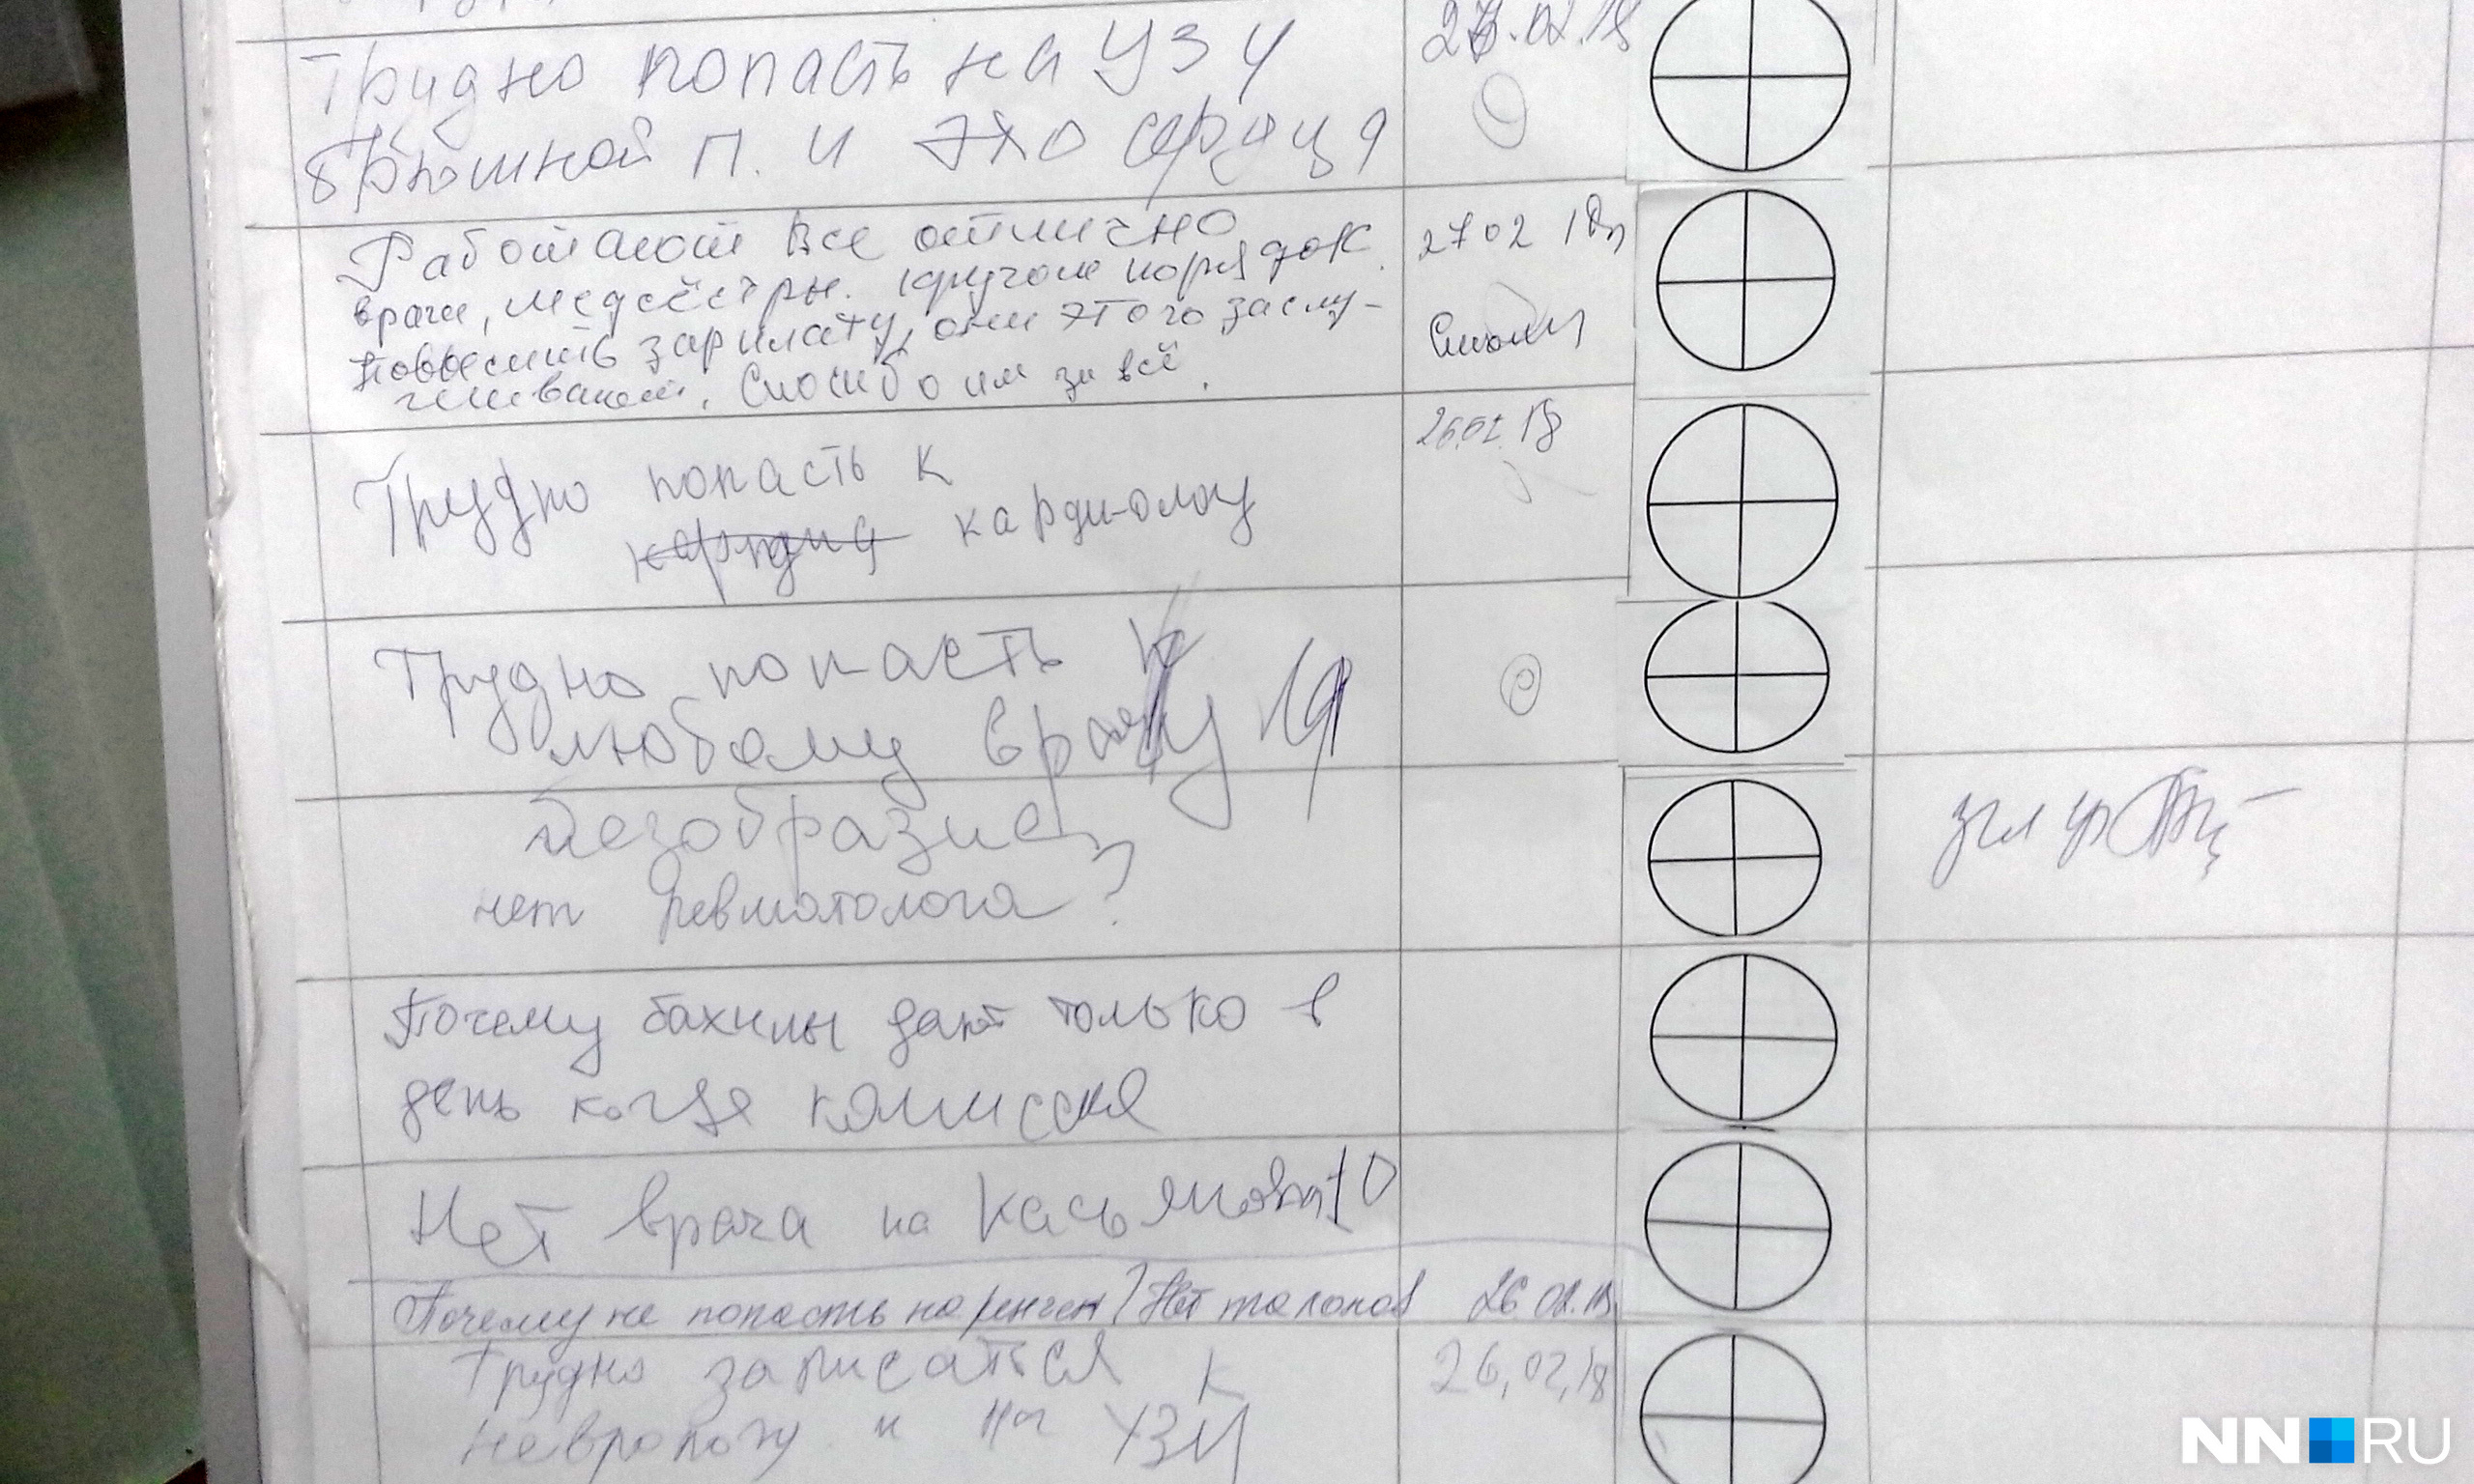 Трудно попасть на УЗИ 27.02.18
брюшной п. и эхо сердца
Работают все отлично 27 02 18
врачи, медсёстры. Кругом порядок.
Повысить зарплату, они этого заслу-
живают. Спасибо им за всё.
Трудно попасть к 26.02.18
кардиологу
Трудно попасть к
любому врачу
Безобразие
нет ревматолога?
Почему бахилы дают только в
день когда комиссия
Нет врача на Касьянова
Почему не попасть на ренген? Нет талонов 26.02.18
Трудно записаться к 26,02,18
неврологу и на УЗИ
NN RU